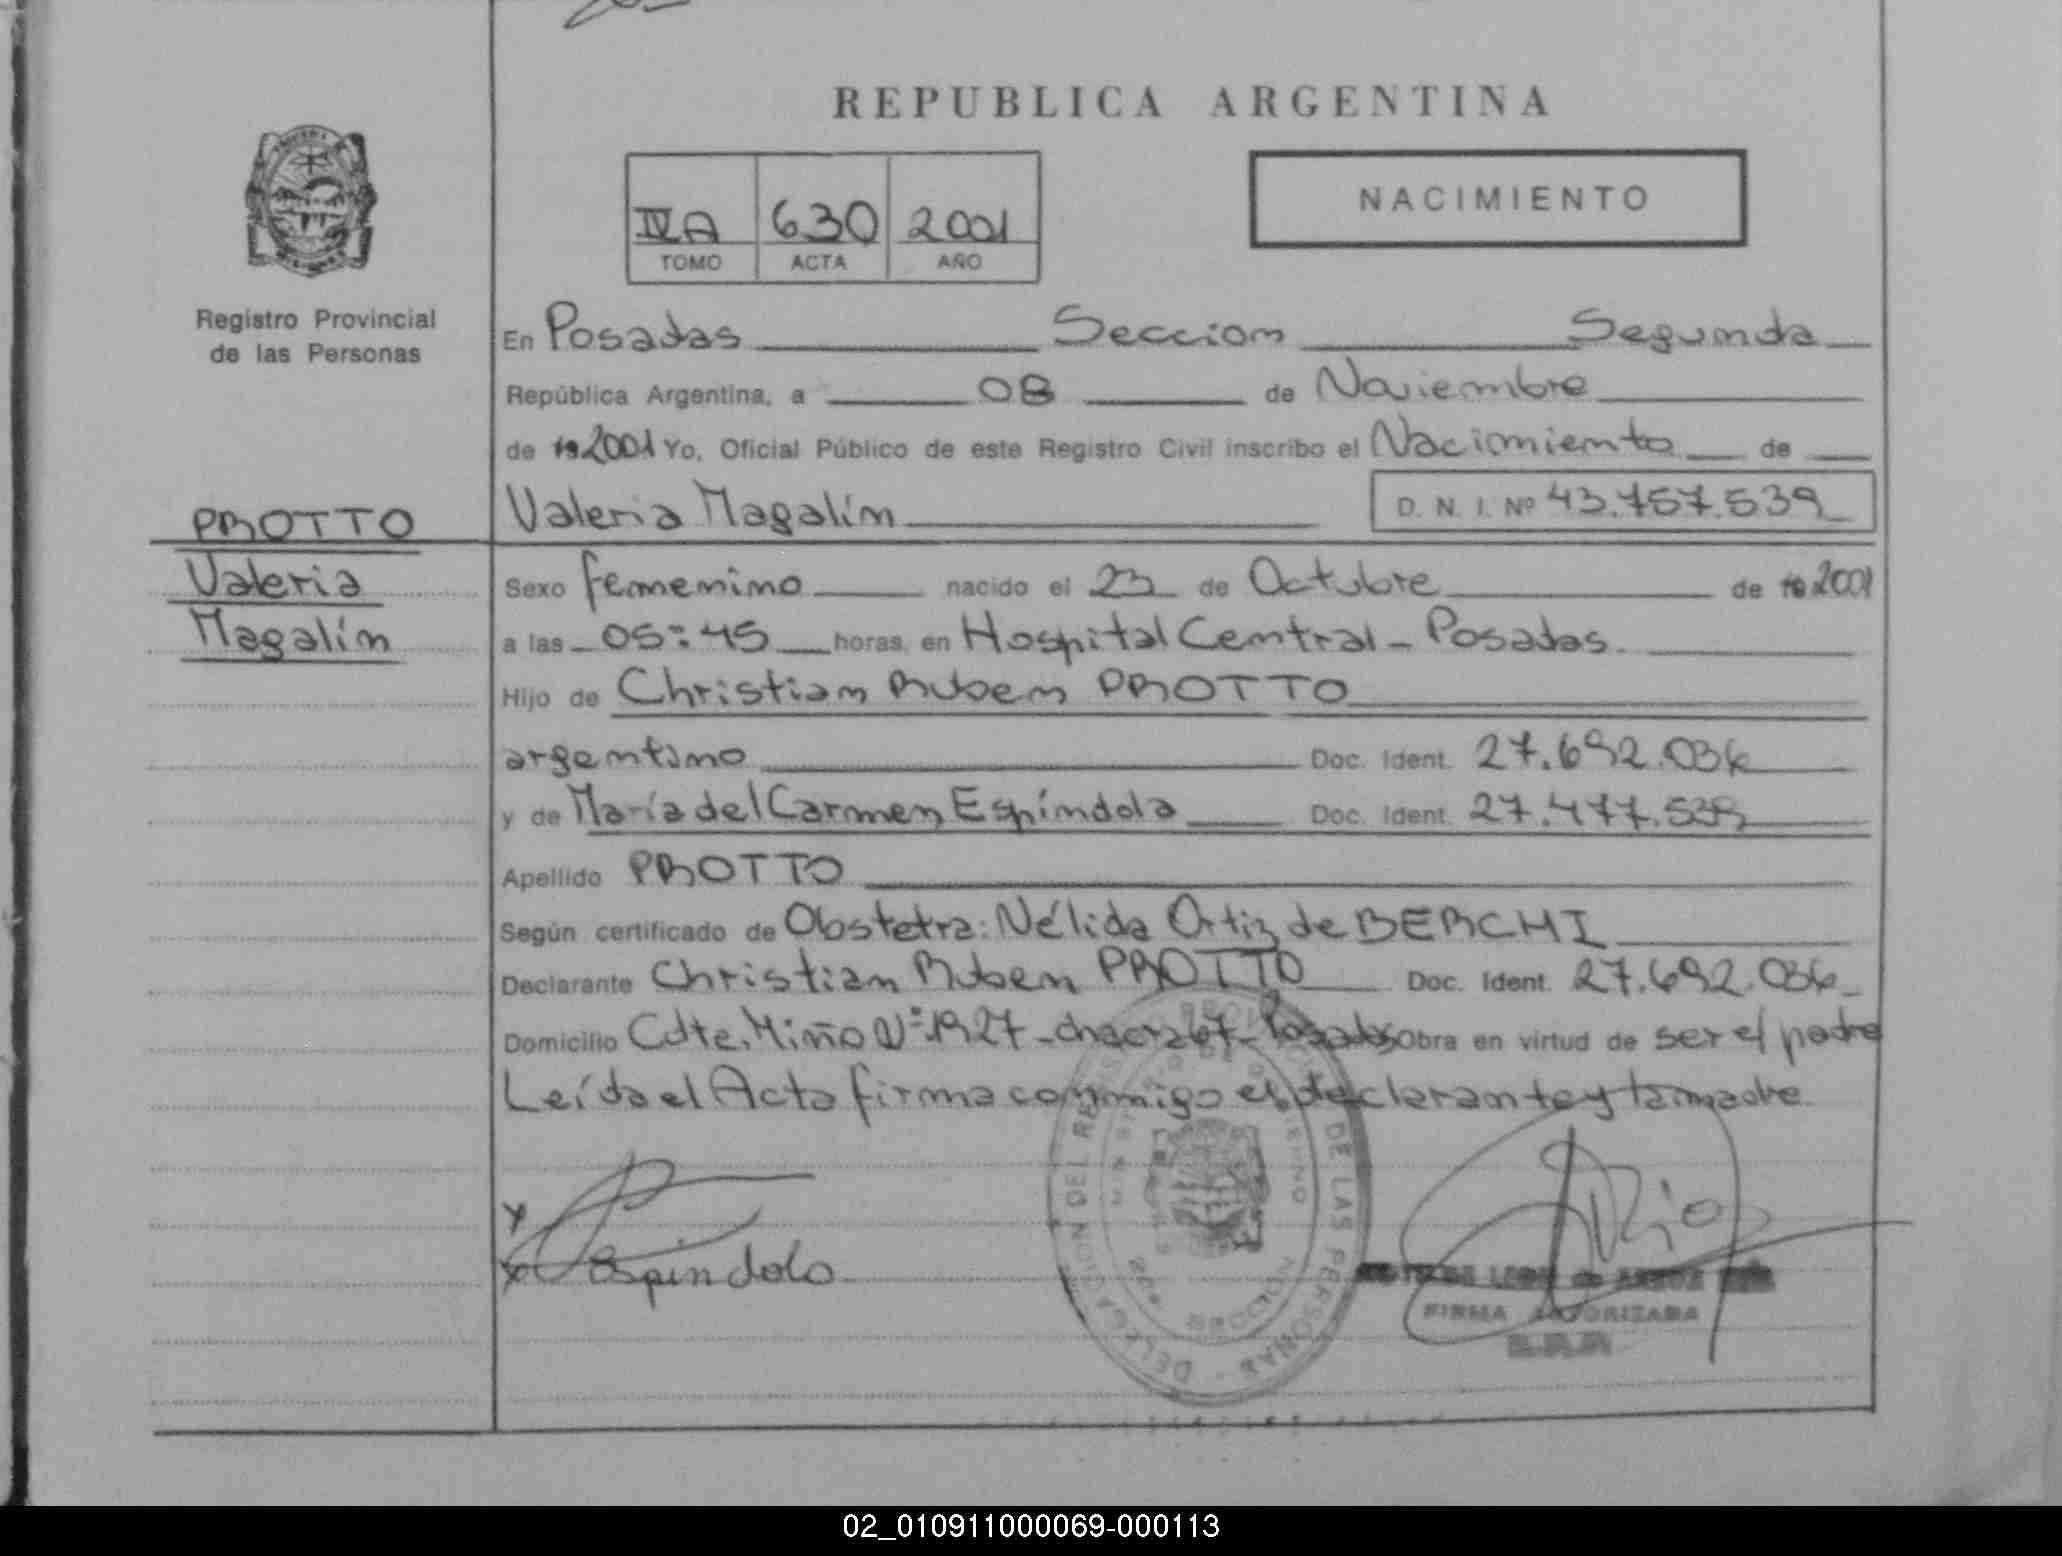 REPUBLICA ARGENTINA
NACIMIENTO
IVA 630 2001
TOMO ACTA AÑO
Registro Provincial
de las Personas
En Posadas Seccion Segunda
República Argentina, a 08 de Noviembre
de 19 2001 Yo, Oficial Público de este Registro Civil inscribo el Nacimiento de
PROTTO
Valeria Magalín D. N. I. Nº 43.757.539
Valeria
Sexo femenino nacido el 23 de Octubre de 19 2001
Magalín
a las 05:45 horas, en Hospital Central - Posadas.
Hijo de Christian Ruben PROTTO
argentino Doc. Ident. 27.692.036
y de María del Carmen Espíndola Doc. Ident. 27.477.539
Apellido PROTTO
Según certificado de Obstetra: Nélida Ortiz de BERCHI
Declarante Christian Ruben PROTTO Doc. Ident. 27.692.036
Domicilio Cdte. Miño Nº 1927 - chacra 67 - Posadas Obra en virtud de ser el padre
Leída el Acta firma conmigo el declarante y la madre.
x
x Espindola
DELEGACION DEL REGISTRO PROVINCIAL DE LAS PERSONAS
MINISTERIO DE GOBIERNO
POSADAS
FIRMA AUTORIZADA
02_010911000069-000113